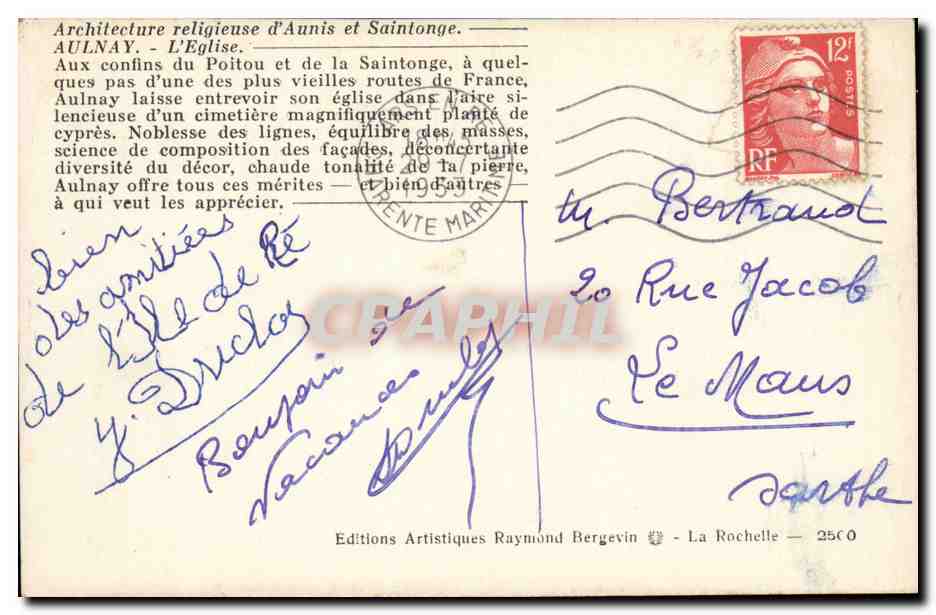 Architecture religieuse d'Aunis et Saintonge.
AULNAY. - L'Eglise.
Aux confins du Poitou et de la Saintonge, à quel-
ques pas d'une des plus vieilles routes de France,
Aulnay laisse entrevoir son église dans l'aire si-
lencieuse d'un cimetière magnifiquement planté de
cyprès. Noblesse des lignes, équilibre des masses,
science de composition des façades, déconcertante
diversité du décor, chaude tonalité de la pierre,
Aulnay offre tous ces mérites — et bien d'autres —
à qui veut les apprécier.
bien
des amitiées
de l'Ile de Ré
Y. Duclos
Bonjour de
Vacances
12F
POSTES
RF
CHARENTE MARITIME
M. Bertrand
20 Rue Jacob
Le Mans
Sarthe
CPAPHIL
Editions Artistiques Raymond Bergevin - La Rochelle — 2500